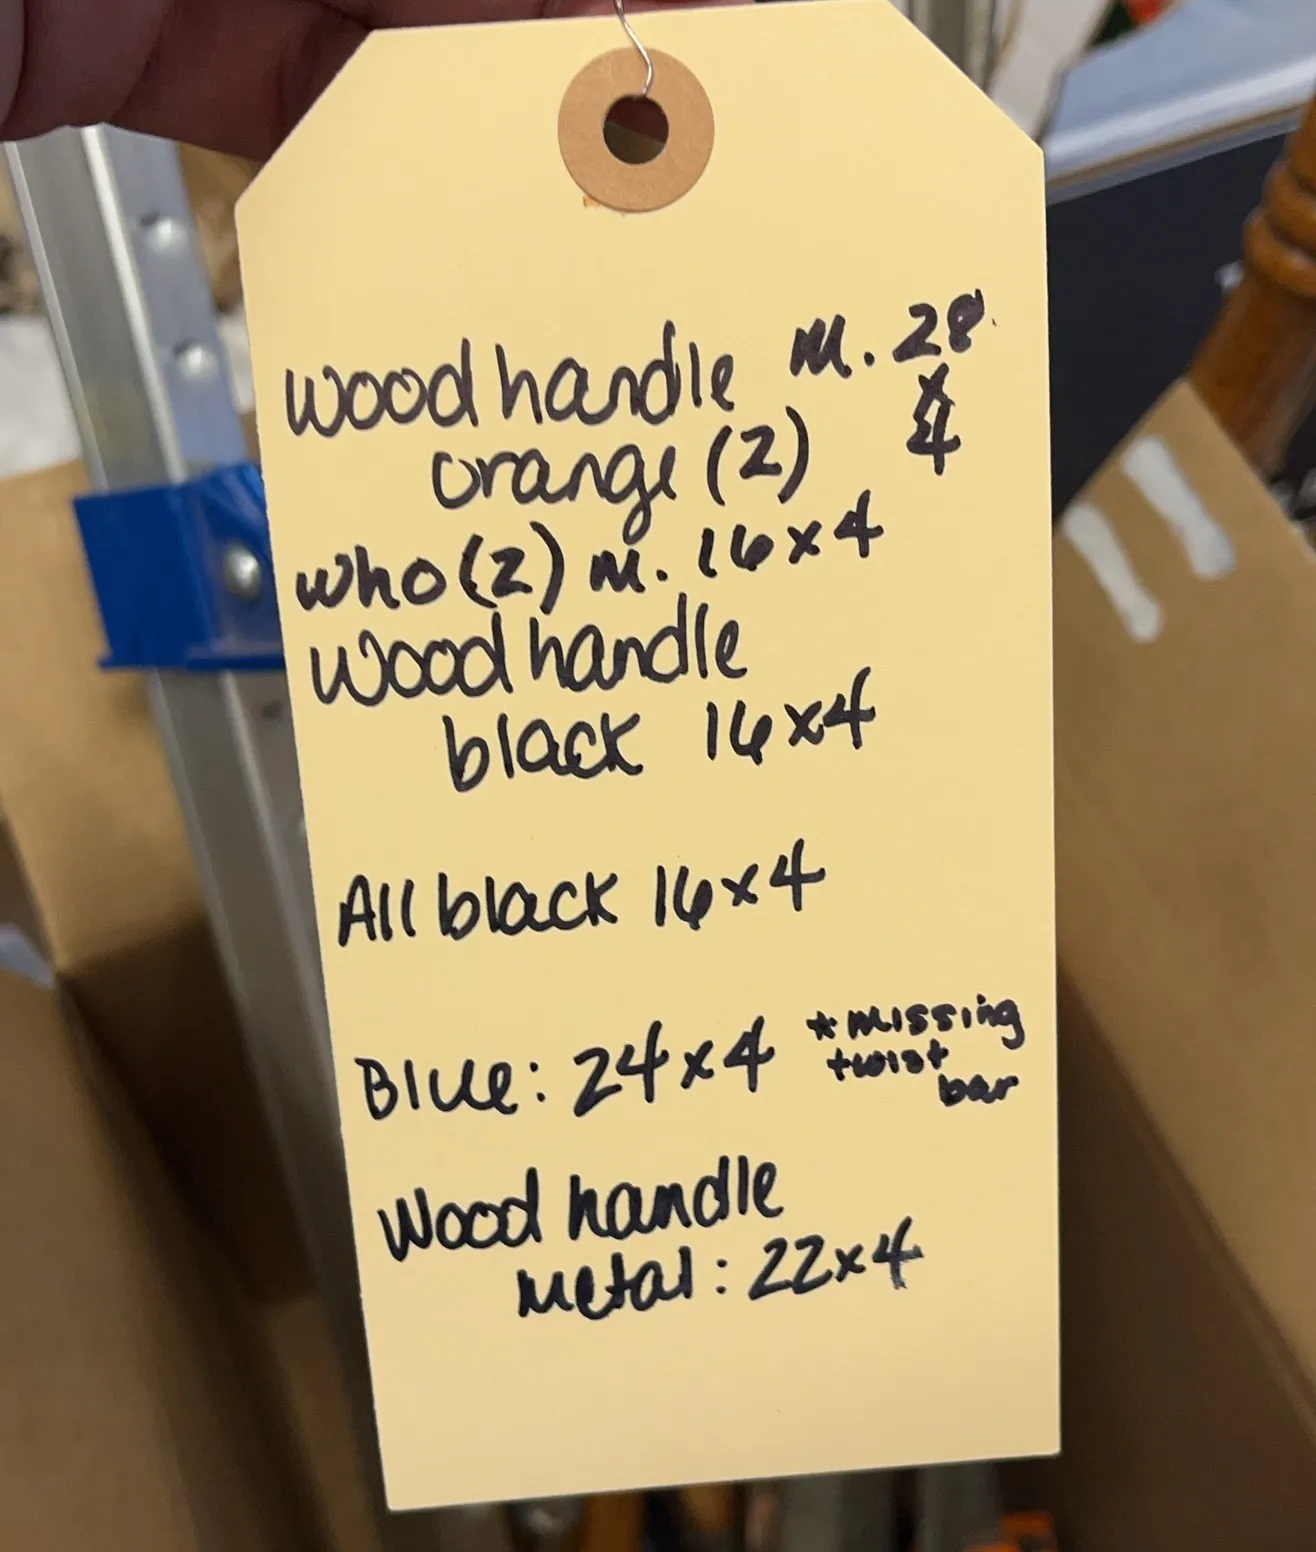 Wood handle M. 28
x
4
orange (2)
who (2) M. 16x4
Wood handle
black 16x4
All black 16x4
Blue: 24x4 *missing
twist
bar
Wood handle
metal: 22x4